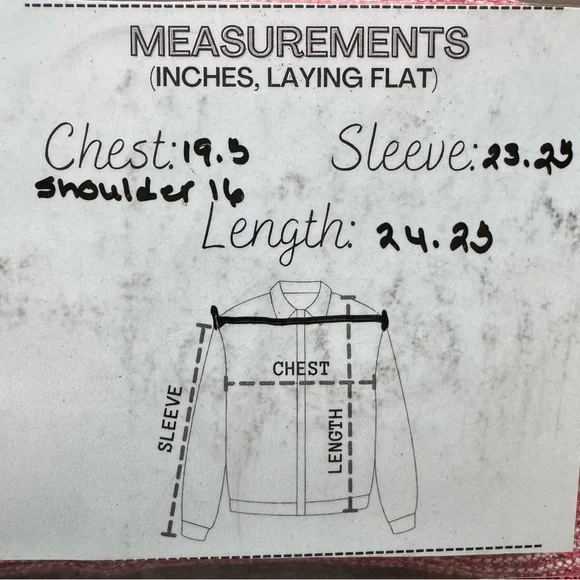 MEASUREMENTS
(INCHES, LAYING FLAT)
Chest: 19.5 Sleeve: 23.25
shoulder 16
Length: 24.25
CHEST
SLEEVE
LENGTH